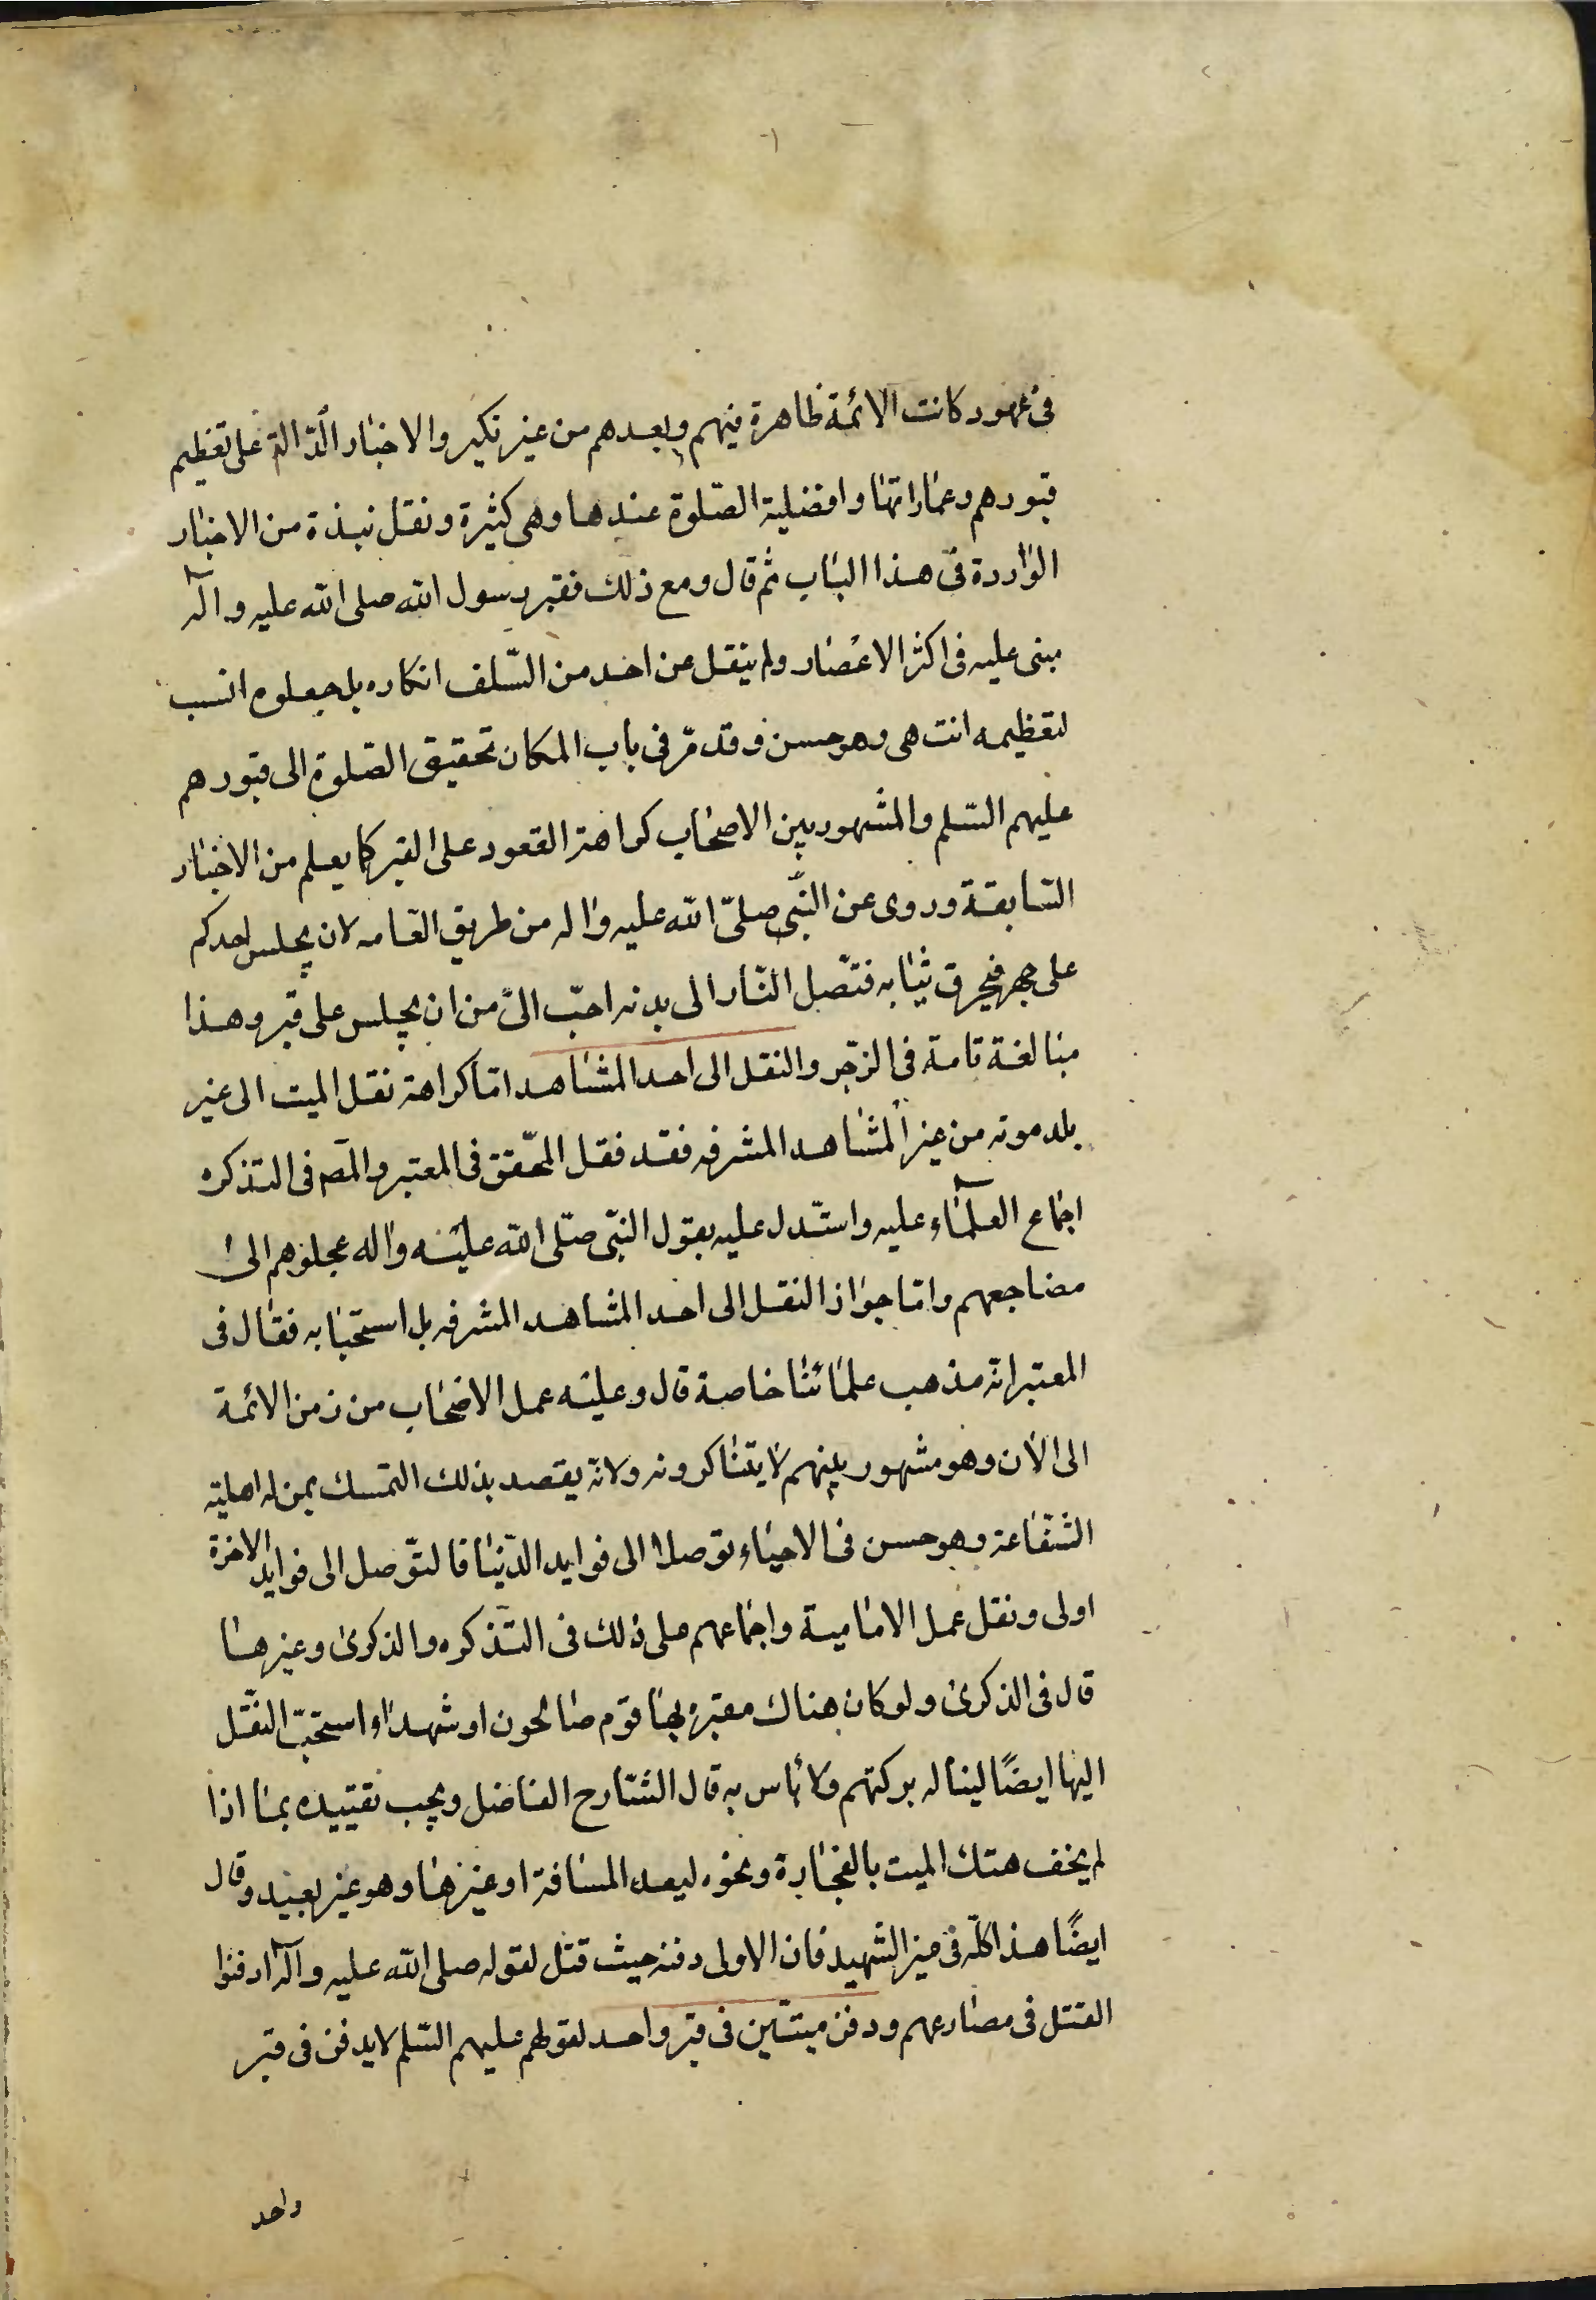 فى عهود كانت الائمة ظاهرة فيهم وبعدهم من غير نكير والاخبار الدّالة على تعظيم
قبورهم وعماراتها وافضلية الصّلوة عندها وهى كثيرة ونقل نبذة من الاخبار
الواردة فى هذا الباب ثم قال ومع ذلك فقبر رسول الله صلى الله عليه وآله
مبنى عليه فى اكثر الاعصار ولم ينقل عن احد من السّلف انكاره بل جعلوه انسب
لتعظيمه انتهى وهو حسن وقد مرّ فى باب المكان تحقيق الصّلوة الى قبورهم
عليهم السّلم والمشهور بين الاصحاب كراهة القعود على القبر كما يعلم من الاخبار
السّابقة وروى عن النّبى صلىّ الله عليه واله من طريق العامه لان يجلس احدكم
على جمر فيحرق ثيابه فتصّل النّار الى بدنه احبّ الىّ من ان يجلس على قبر وهذا
مبالغة تامة فى الزجر والنقل الى احد المشاهد امّا كراهة نقل الميت الى غير
بلد موته من غير المشاهد المشرفه فقد فقل المحّقق فى المعتبر والمص فى التذكره
اجماع العلماء عليه واستّدل عليه بقول النبّى صلّى الله عليه واله عجلوهم الى
مضاجعهم وامّا جواز النقل الى احد المشاهد المشرفه بل استحبابه فقال فى
المعتبر انه مذهب علمائنا خاصة قال وعليه عمل الاصحاب من زمن الائمة
الى الآن وهو مشهور بينهم لا يتناكرونه ولانّه يقصد بذلك التمسك بمن له اهلية
الشفاعة وهو حسن فى الاحياء توصلا الى فوايد الدّنيا فالتّوصل الى فوايد الاخرة
اولى ونقل عمل الامامية واجماعهم على ذلك فى التّذكره والذكرى وغيرها
قال فى الذكرى ولو كان هناك مقبرة بها قوم صالحون او شهداء استحبّ النّقل
اليها ايضًا ليناله بركتهم ولا بأس به قال الشّارح الفاضل ويجب تقييده بما اذا
لم يخف هتك الميت بالفجارة ونحوه لبعد المسافة او غيرها وهو غير بعيد وقال
ايضًا هذا كلّه فى غير الشهيد فان الاولى دفنه حيث قتل لقوله صلى الله عليه وآله ادفنوا
القتل فى مصارعهم ودفن ميتّين فى قبر واحد لقولهم عليهم السّلم لا يدفن فى قبر
واحد